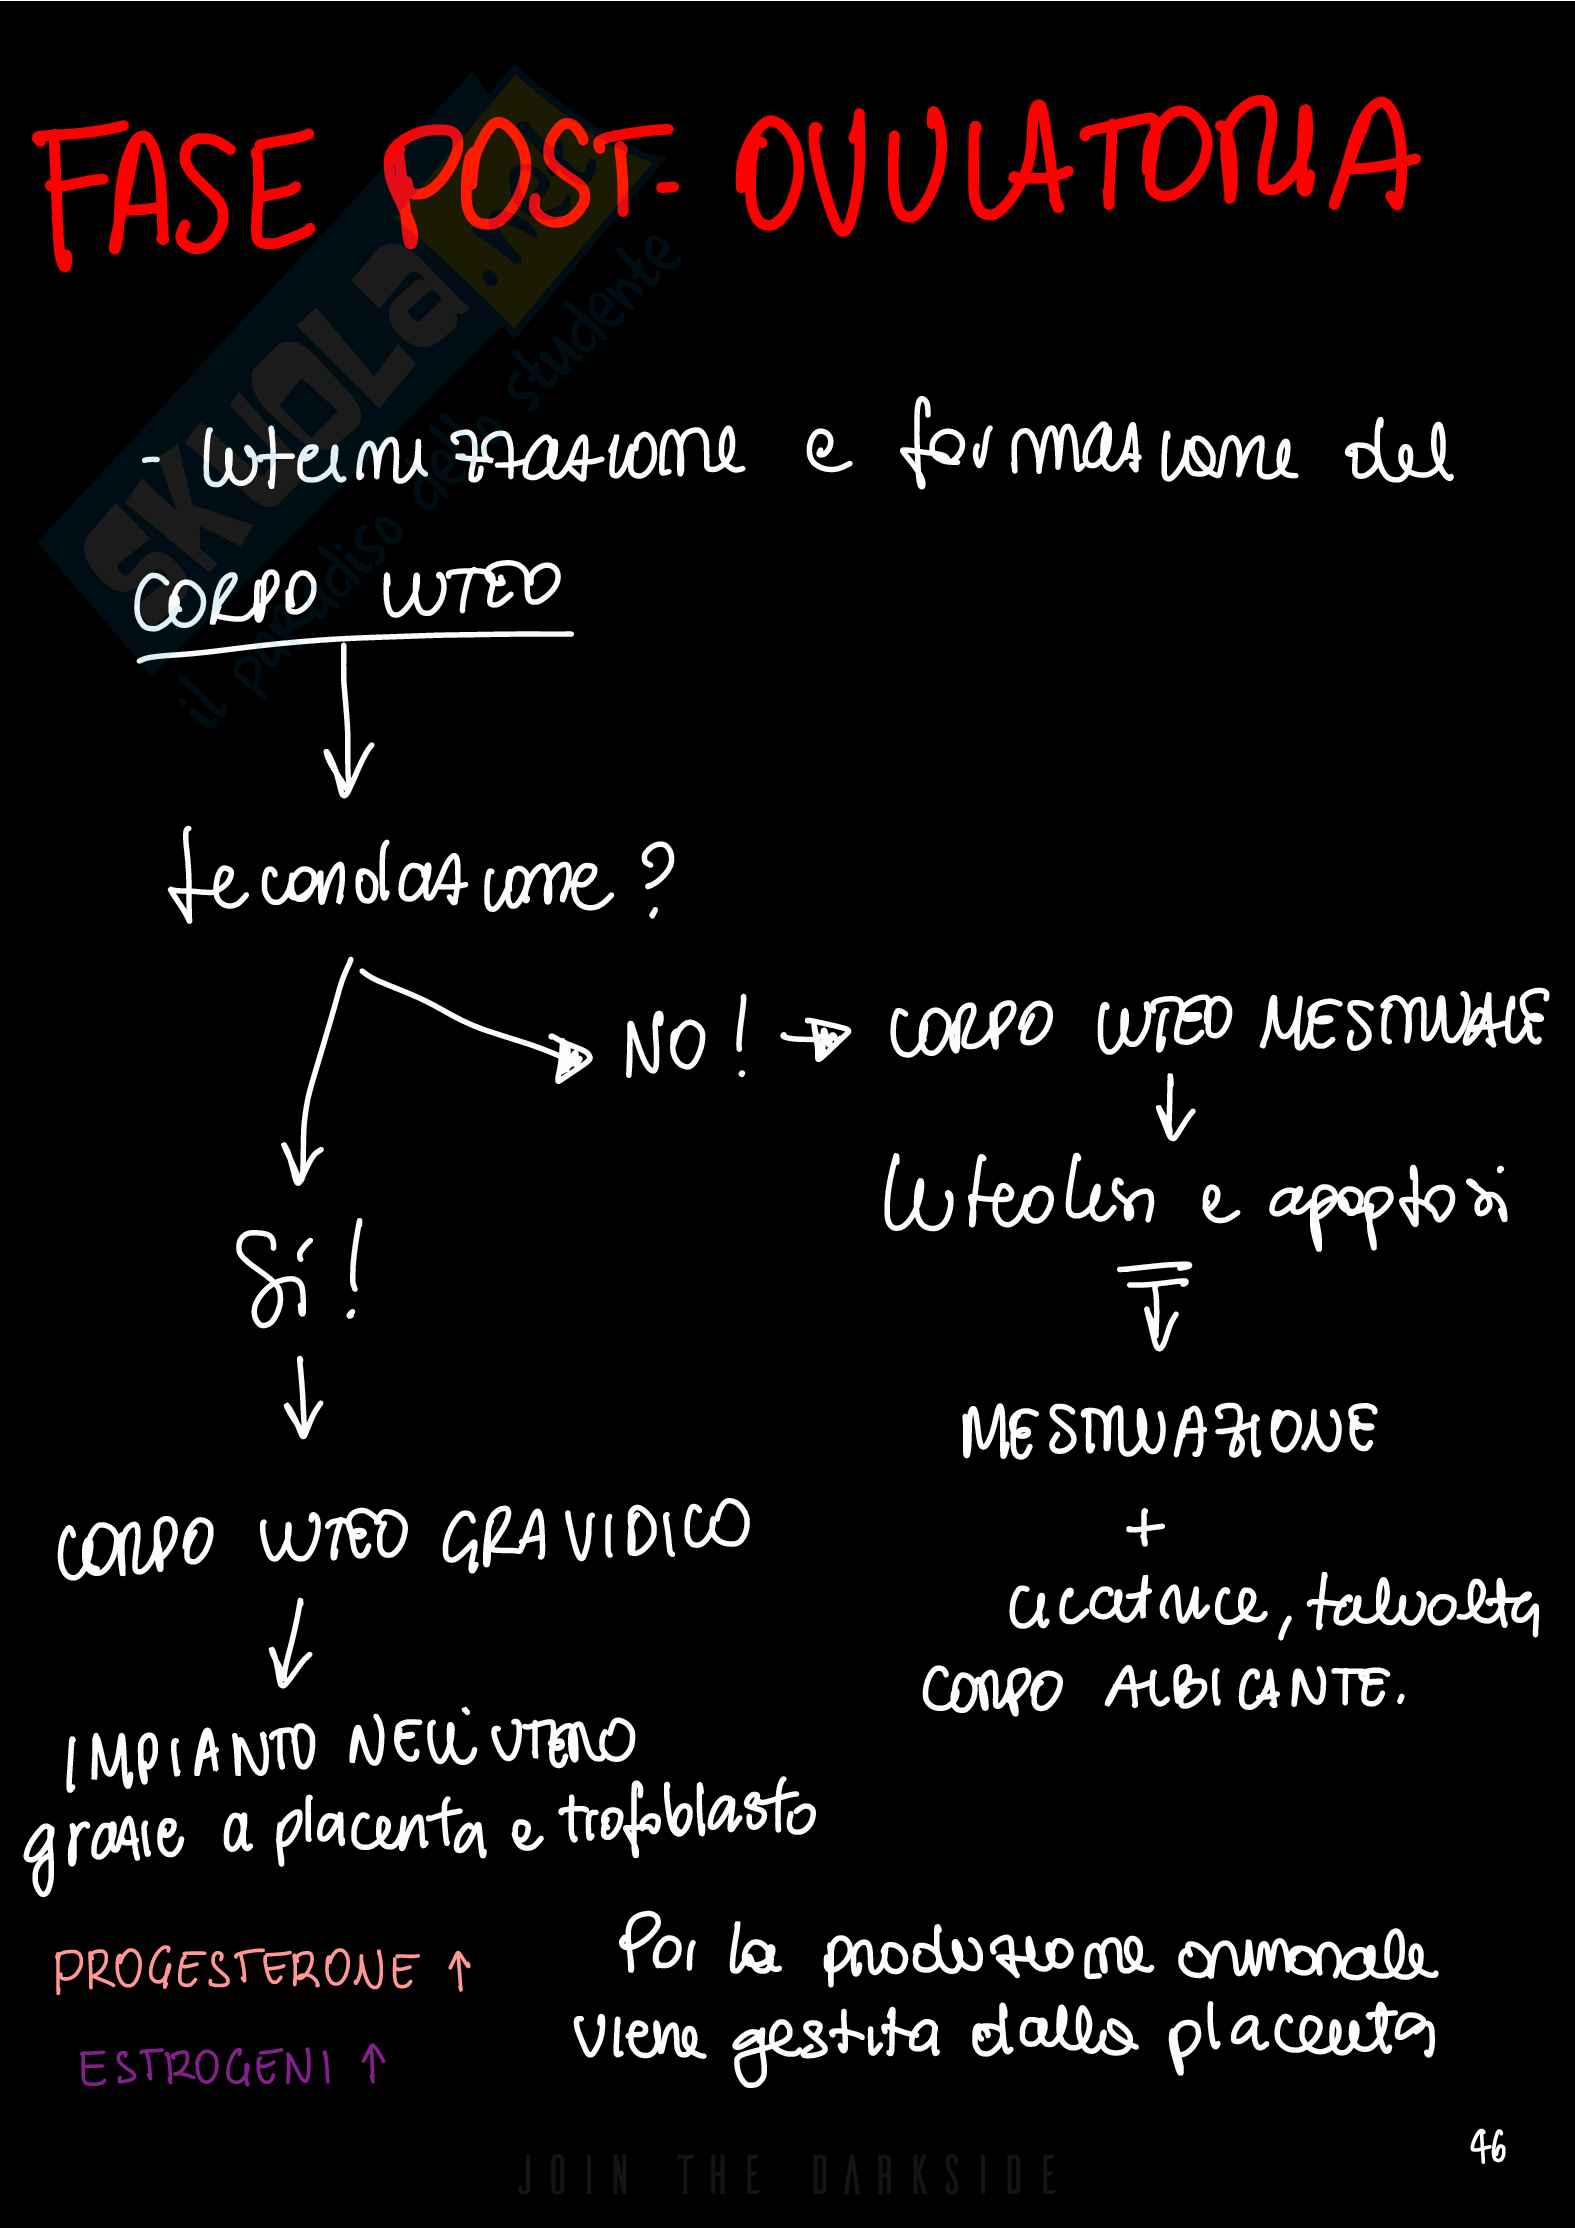 FASE POST-OVULATORIA
- luteinizzazione e formazione del
CORPO LUTEO
fecondazione?
NO! → CORPO LUTEO MESTRUALE
luteolisi e apoptosi
Sí!
MESTRUAZIONE
+
CORPO LUTEO GRAVIDICO
cicatrice, talvolta
CORPO ALBICANTE.
IMPIANTO NELL'UTERO
grazie a placenta e trofoblasto
PROGESTERONE ↑
Poi la produzione ormonale
viene gestita dalla placenta
ESTROGENI ↑
46
JOIN THE DARKSIDE
SKUOLA.net
il paradiso dello studente